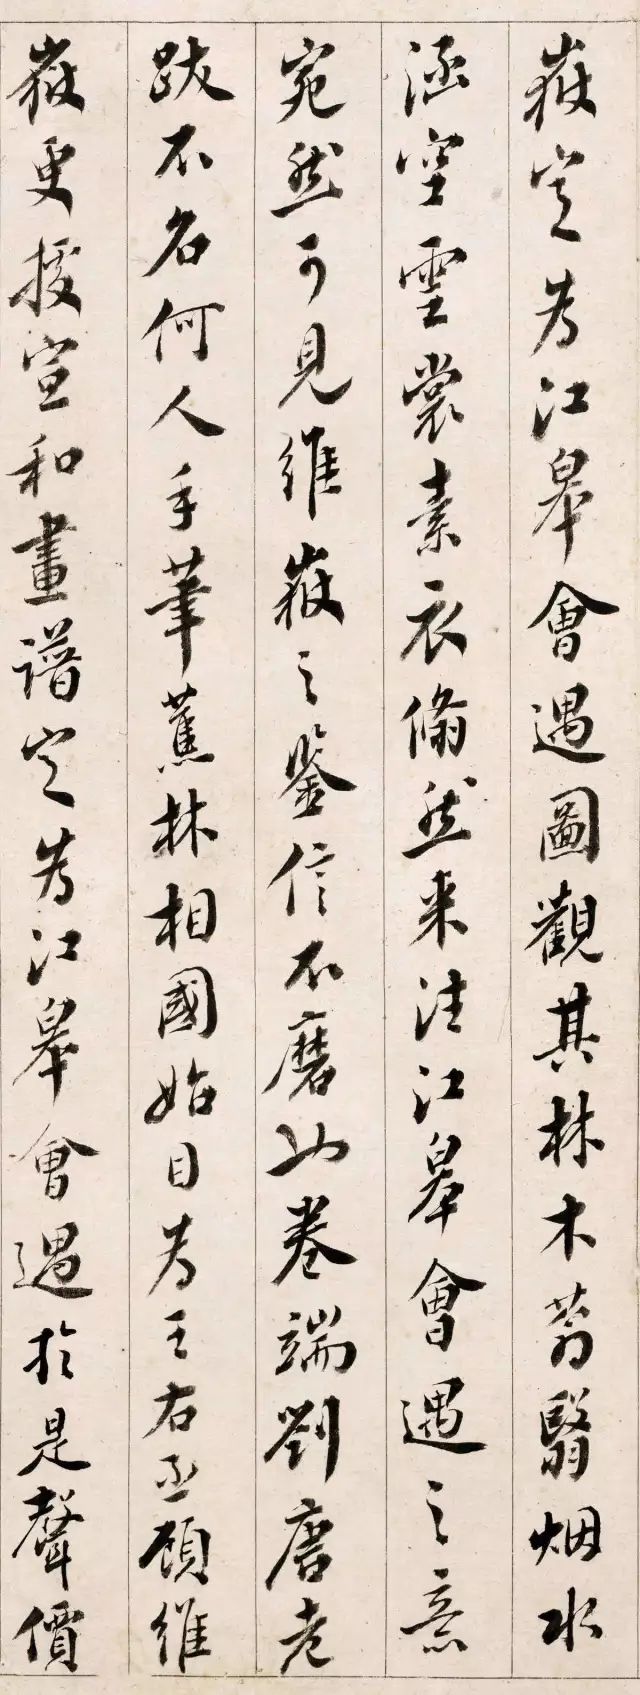 嶽定為江皋會遇圖觀其林木蓊翳烟水
涵空雲裳素衣翛然来往江皋會遇之意
宛然可見維嶽之鑒信不磨也卷端劉唐老
跋不名何人手筆蕉林相國始目為王右丞顧維
嶽更援宣和畫譜定為江皋會遇於是聲價